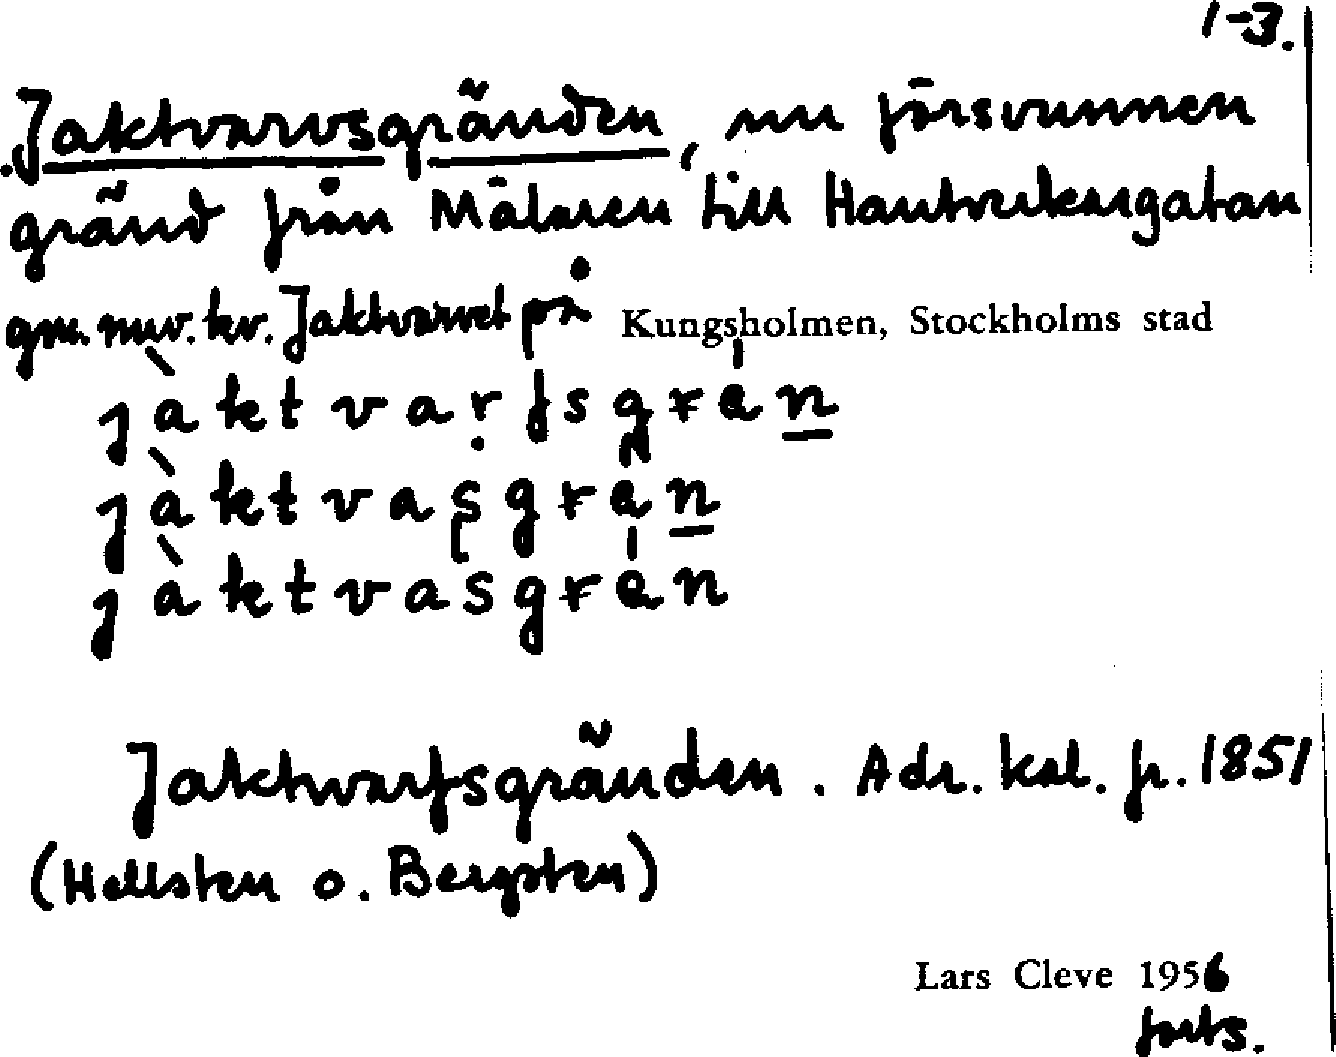 1-3.
Jaktvarvsgränden, nu försvunnen
gränd från Mälaren till Hantverkargatan
gm. nuv. kv. Jaktvarvet på Kungsholmen, Stockholms stad
jàktvaṛfsgrän
jàktvasgrän
jàktvasgrän
Jaktwarfsgränden. Adr. kal. fr. 1851
(Hellsten o. Bergsten)
Lars Cleve 1956
forts.